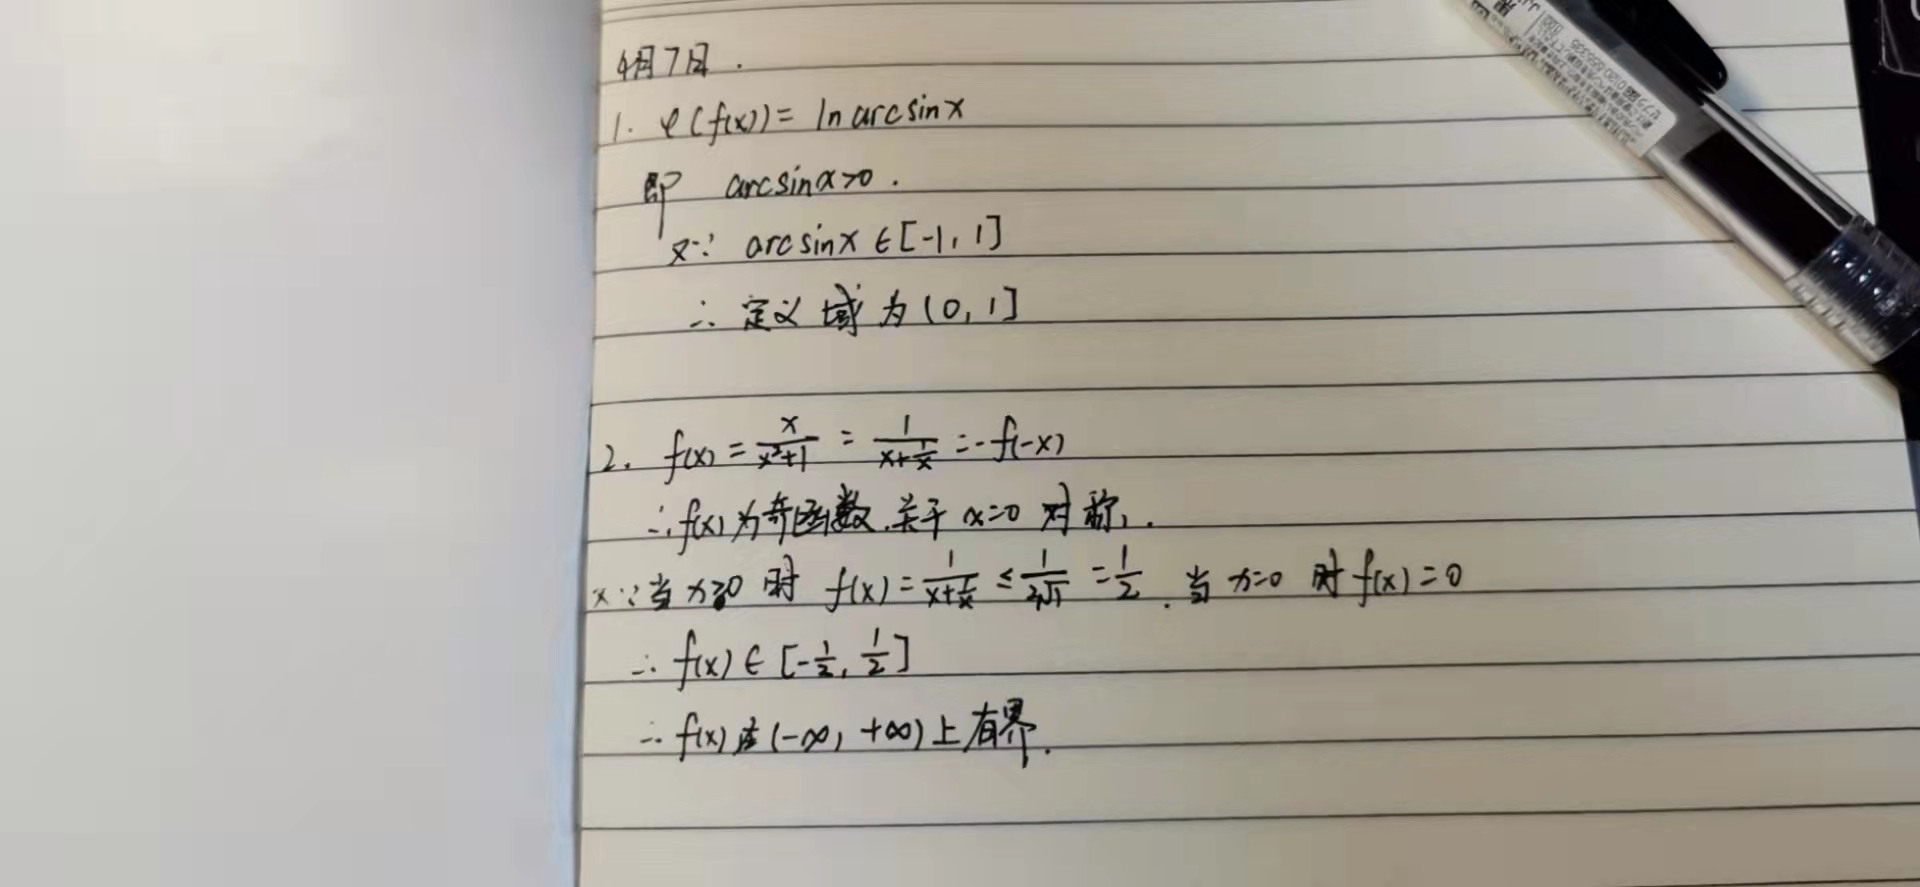 4月7日.
1. φ(f(x))= ln arcsinx
即 arcsinx>0.
又∵ arcsinx∈[-1,1]
∴ 定义域为(0,1]
2. f(x)=\frac{x}{x²+1}=\frac{1}{x+\frac{1}{x}}=-f(-x)
∴f(x)为奇函数.关于x=0对称.
又∵当x>0时 f(x)=\frac{1}{x+\frac{1}{x}}≤\frac{1}{2\sqrt{1}}=\frac{1}{2}.当x=0时f(x)=0
∴ f(x)∈[-\frac{1}{2},\frac{1}{2}]
∴ f(x)在(-∞,+∞)上有界.